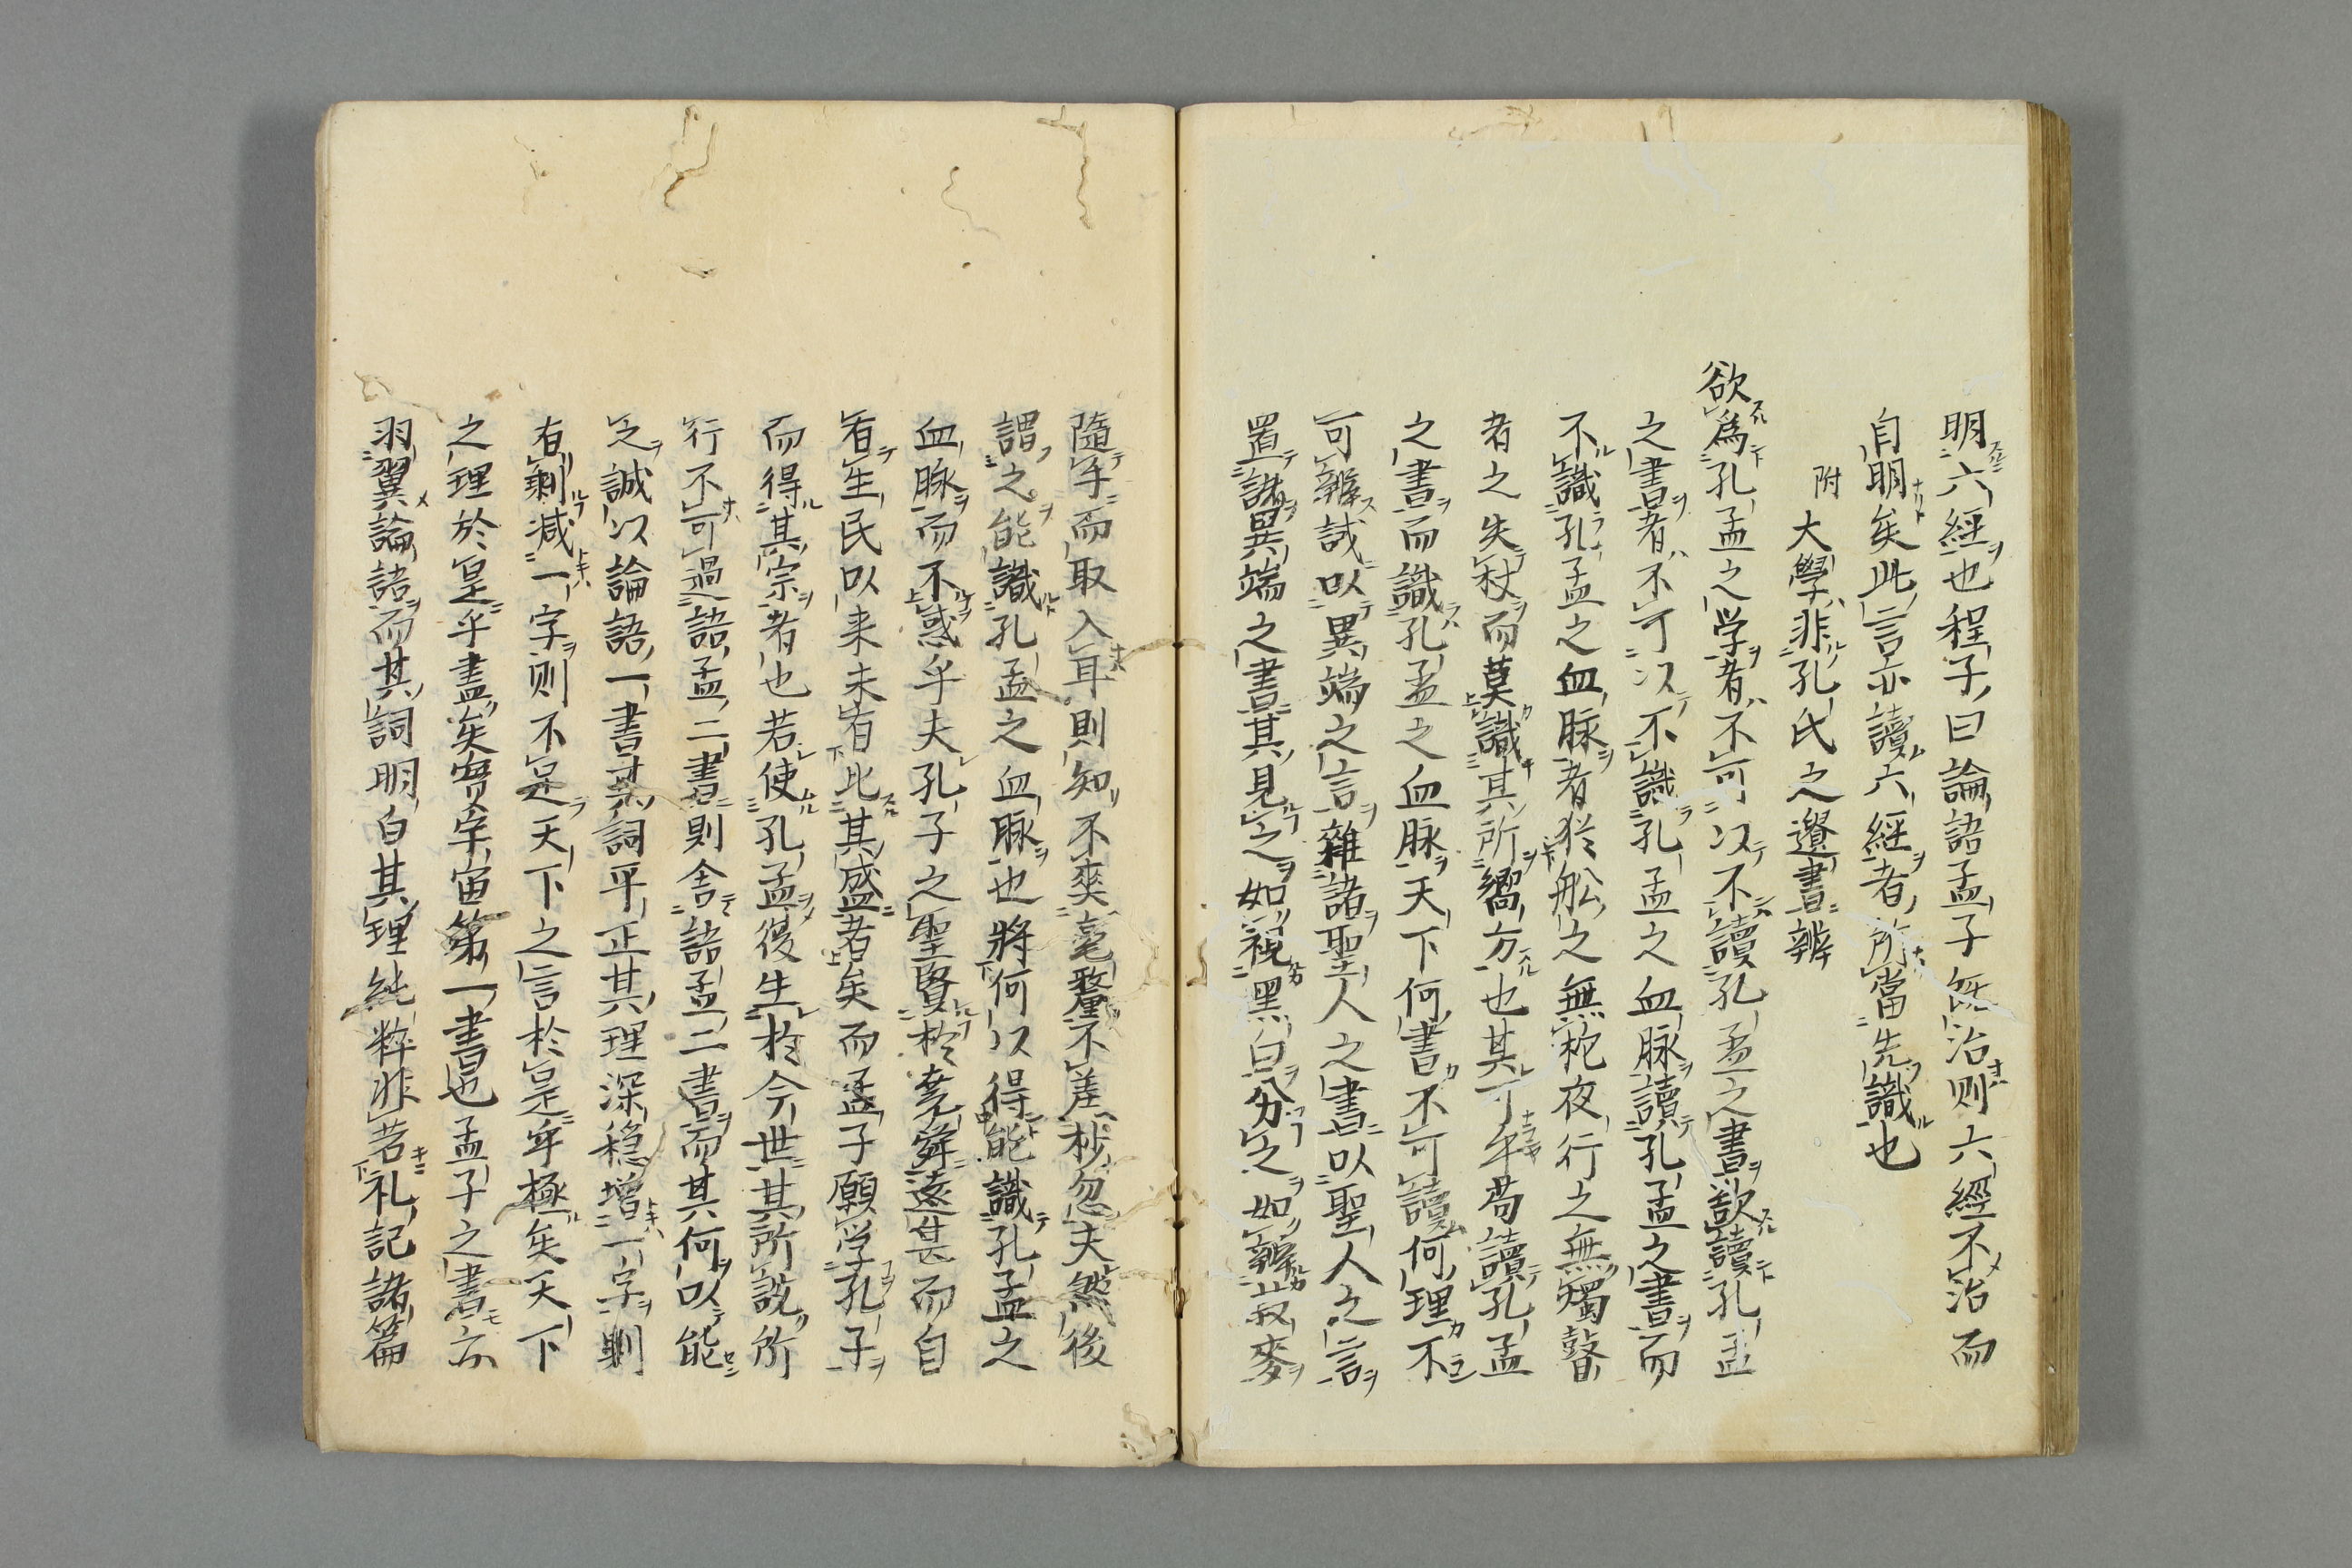 明六經也程子曰論語孟子既治則六經不治而
自明矣此言亦讀六經者所當先識也
附大學非孔氏之遺書辨
欲為孔孟之学者不可以不讀孔孟之書欲讀孔孟
之書者不可以不識孔孟之血脉讀孔孟之書而
不識孔孟之血脉者猶舩之無柁夜行之無燭瞽
者之失杖而莫識其所嚮方也其可乎苟讀孔孟
之書而識孔孟之血脉天下何書不可讀何理不
可辨試以異端之言雜諸聖人之書以聖人之言
置諸異端之書其見之如視黑白分之如辨菽麥
隨手而取入耳則知不爽毫釐不差杪忽夫然後
謂之能識孔孟之血脉也將何以得能識孔孟之
血脉而不惑乎夫孔子之聖賢於堯舜遠甚而自
有生民以来未有比其盛者矣而孟子願学孔子
而得其宗者也若使孔孟復生於今世其所說所
行不可過語孟二書則舍語孟二書而其何以能
之誠以論語一書其詞平正其理深穏增一字則
有剰減一字則不足天下之言於是乎極矣天下
之理於是乎盡矣實宇宙第一書也孟子之書亦
羽翼論語而其詞明白其理純粋非若礼記諸篇